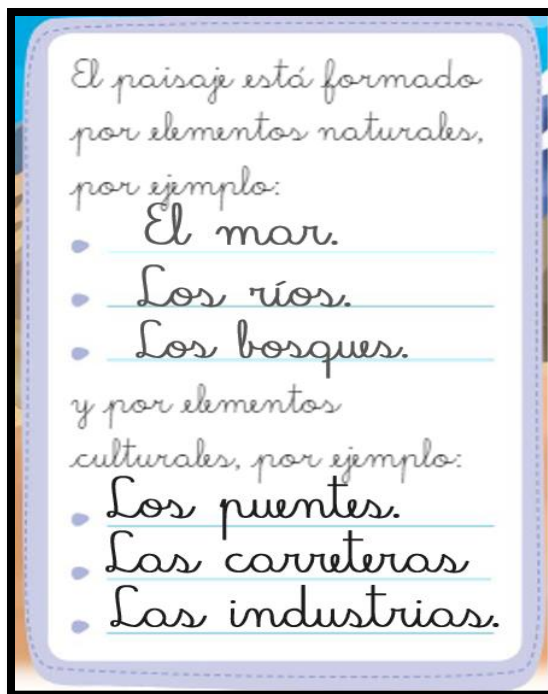 El paisaje está formado
por elementos naturales,
por ejemplo:
El mar.
Los ríos.
Los bosques.
y por elementos
culturales, por ejemplo:
Los puentes.
Las carreteras
Las industrias.